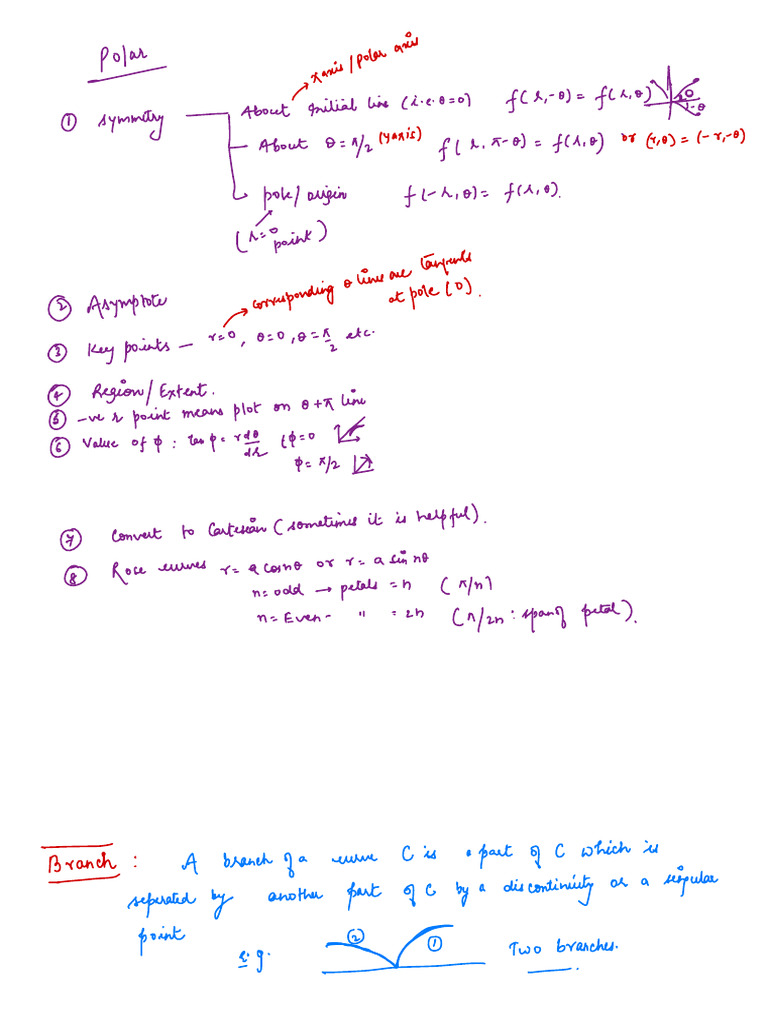 Polar
xaxis/polar axis
① symmetry
About initial line (i.e. θ=0) f(r,-θ) = f(r,θ) θ -θ
About θ=π/2 (yaxis) f(r, π-θ) = f(r,θ) or (r,θ) = (-r,-θ)
pole/origin f(-r,θ) = f(r,θ).
(r=0 point)
② Asymptote
corresponding θ lines are tangents at pole (0).
③ Key points — r=0, θ=0, θ=π/2 etc.
④ Region/Extent.
⑤ -ve r point means plot on θ+π line
⑥ Value of φ : tan φ = r dθ/dr φ=0
φ = π/2
⑦ Convert to Cartesian (sometimes it is helpful).
⑧ Rose curves r= a cos nθ or r= a sin nθ
n=odd → petals = n (π/n)
n=Even - " = 2n (π/2n : span of petal).
Branch : A branch of a curve C is a part of C which is
seperated by another part of C by a discontinuity or a singular
point
e.g. ② ① Two branches.